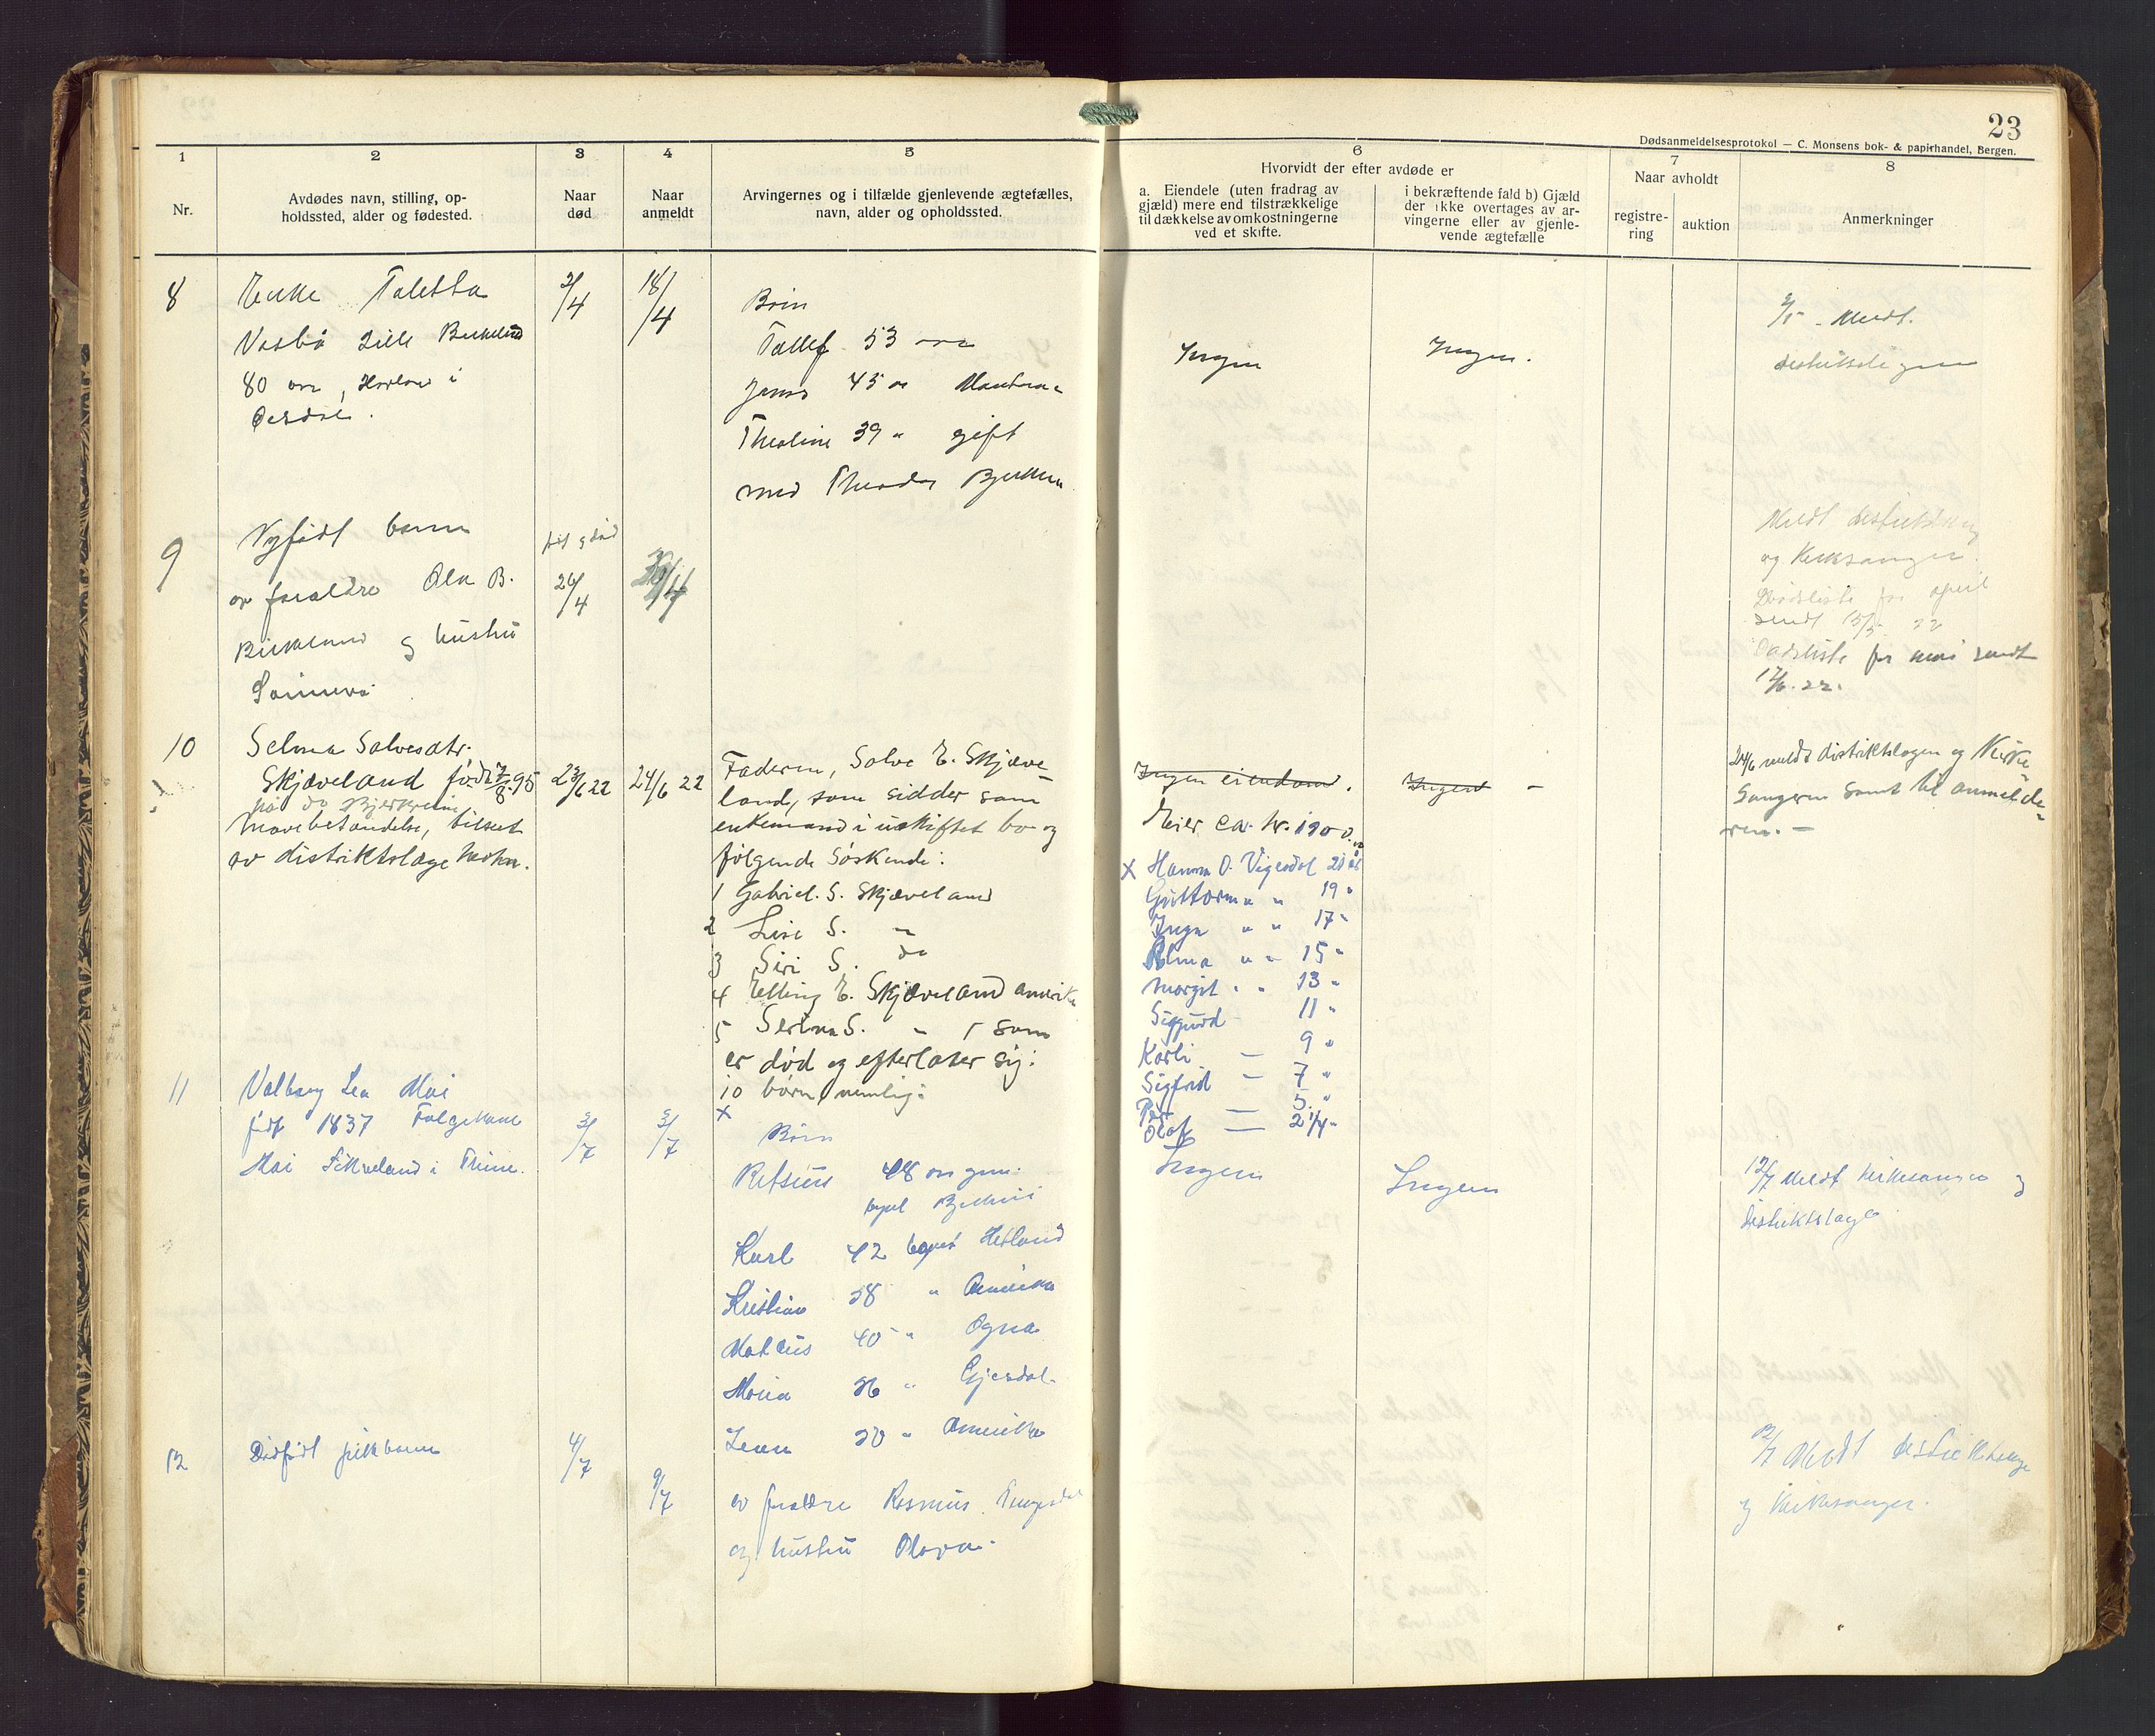 23
Dødsanmeldelsesprotokol — C. Monsens bok- & papirhandel, Bergen.
1
Nr.
2
Avdødes navn, stilling, op-
holdssted, alder og fødested.
3
Naar
død
4
Naar
anmeldt
5
Arvingernes og i tilfælde gjenlevende ægtefælles,
navn, alder og opholdssted.
6
Hvorvidt der efter avdøde er
a. Eiendele (uten fradrag av
gjæld) mere end tilstrækkelige
til dækkelse av omkostningerne
ved et skifte.
i bekræftende fald b) Gjæld
der ikke overtages av ar-
vingerne eller av gjenle-
vende ægtefælle
7
Naar avholdt
registre-
ring
auktion
8
Anmerkninger
8
Enke Taletta
Vasbø Lille Birkeland
80 aar,
2/4
18/4
Børn
Tollef 53 aar
Jonas 45 aar
Theoline 39 " gift
med Theodor
Ingen
Ingen.
2/5 - Meldt.
distriktslægen
9
Nyfødt barn
av foraldre Ola B.
Birkeland og hustru
født og død
26/4
30/4
Meldt distriktslæge
og Kirksanger.
Dødsliste for april
sendt 13/5 22
Dødsliste for mai sendt
12/6. 22.
10
Selma Salvesdtr.
Skjæveland født 7/8.95
paa do Bjerkreim
Mavebetændelse, tilset
av distriktslæge Mohn.
23/6 22
24/6 22
Faderen, Salve E. Skjæve-
land, som sidder som
enkemand i uskiftet bo og
følgende søskende:
1 Gabriel. S. Skjæveland
2 Lise S. "
3 Siri S. do
4 Elling E. Skjæveland Amerika
5 Serina S. " som
er død og efterlater sig:
10 børn nemlig:
x
Ingen eiendom.
Ingen -
Eier ca. kr. 1900.
x Hanna O. Vigesdal 21 år
Guttorm " " 19 "
Inga " " 17 "
Alma " " 15 "
Margit " " 13 "
Sigurd 11 "
Karli — 9 "
Sigfrid — 7 "
Per — 5. "
Olaf — 2 1/4 "
24/6 meldt distriktslægen og Kirke-
sangeren samt til anmelde-
ren. —
11
Valborg Lea Moi
født 1837 Folgekone
Moi i Thime.
3/7
3/7
Børn
48 aar
Karl 42 bopæl Hetland
Kristian 38 " Amerika
Matæus 40 " Ogna
Maria 36 " Gjesdal
30 " Amerika
Ingen
Ingen
12/7 Meldt kirkesanger og
distriktslæge
12
Dødfødt pikebarn
4/7
9/7
av foraldre Rasmus
og hustru Olava.
12/7 Meldt distriktslæge
og Kirkesanger.